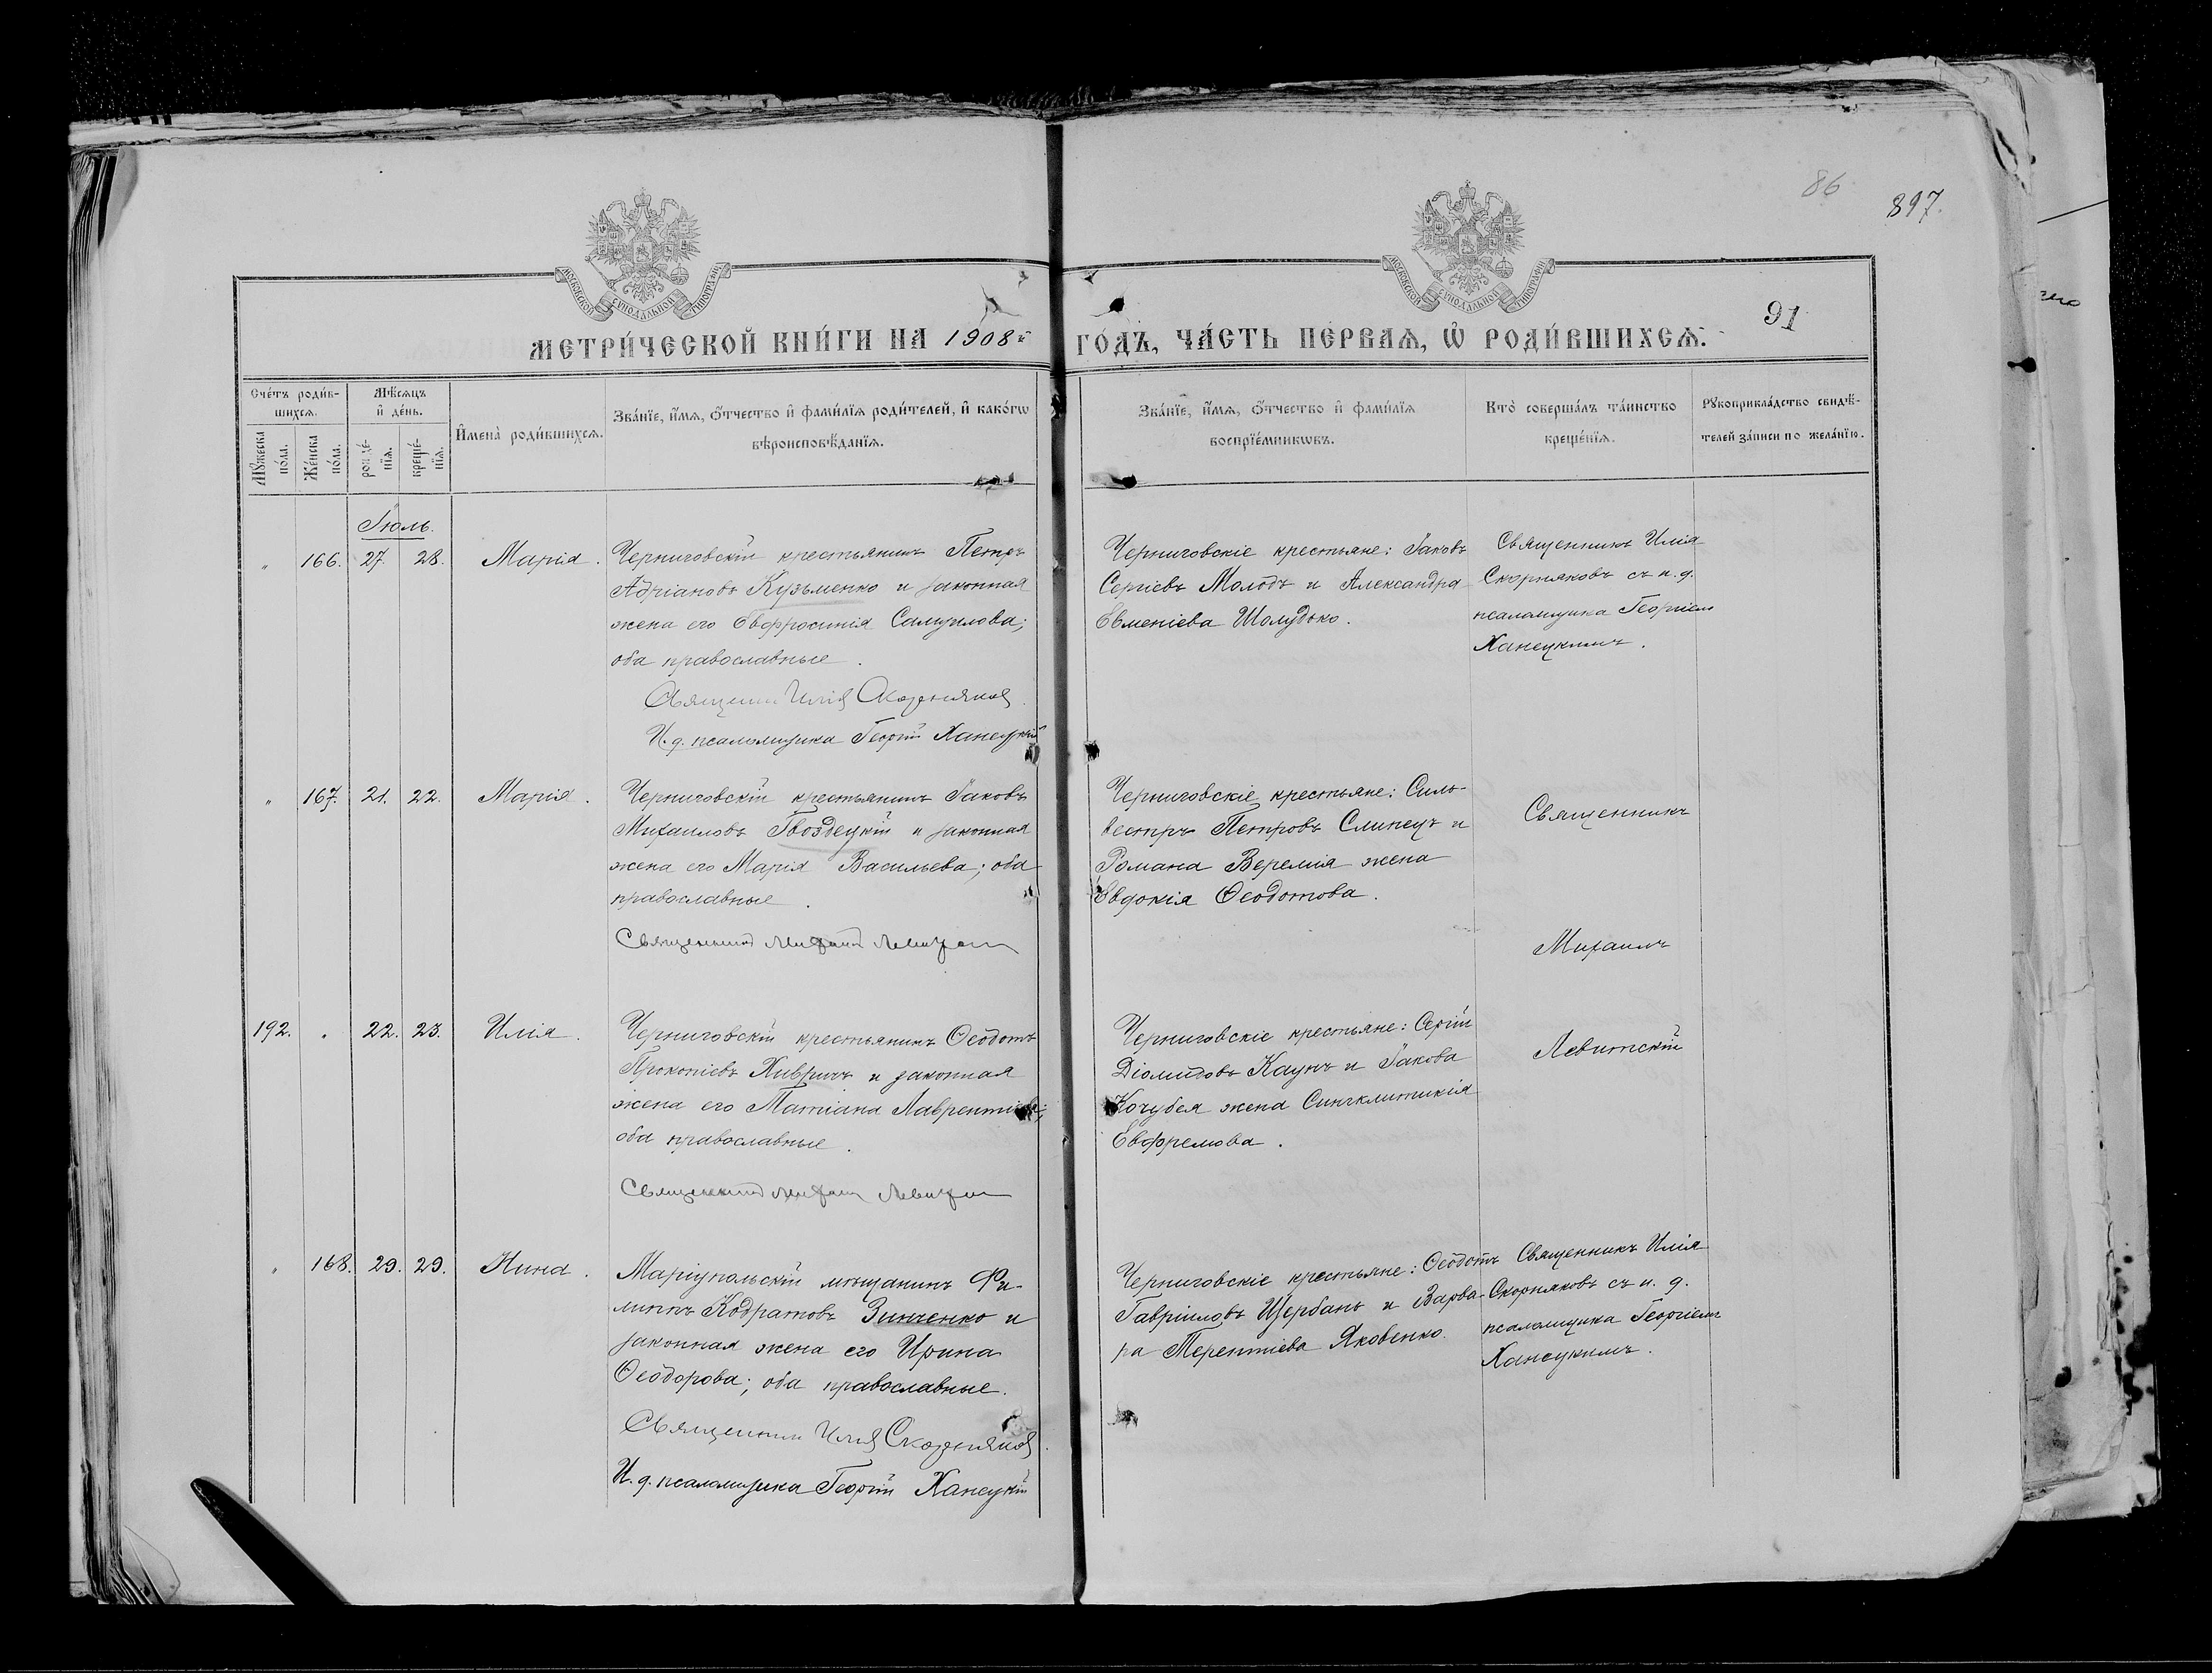 86
897.
МОСКОВСКОЙ СѴНОДАЛЬНОЙ ТИПОГРАФІИ
МОСКОВСКОЙ СѴНОДАЛЬНОЙ ТИПОГРАФІИ
91
МЕТРИ́ЧЕСКОЙ КНИ́ГИ НА 1908й ГО́ДЪ, ЧА́СТЬ ПЕ́РВАѦ, Ѡ РОДИ́ВШИХСѦ:
Сче́тъ роди́в-
шихсѧ.
Мꙋ́жеска
по́ла.
Же́нска
по́ла.
Мѣ́сѧцъ
и҆ де́нь.
рожде́-
нїѧ.
креще́-
нїѧ.
И҆мена̀ роди́вшихсѧ.
Зва́нїе, и҆́мѧ, ѻ҆́тчество и҆ фами́лїѧ роди́телей, и҆ како́гѡ
вѣроисповѣ́данїѧ.
Зва́нїе, и҆́мѧ, ѻ҆́тчество и҆ фами́лїѧ
воспрїе́мникѡвъ.
Кто̀ соверша́лъ та́инство
креще́нїѧ.
Рꙋкоприкла́дство свидѣ́-
телей за́писи по жела́нїю.
Іюль.
" 166. 27. 28. Марія.
Черниговскій крестьянинъ Петръ
Адріановъ Кузьменко и законная
жена его Евфросинія Самуилова;
оба православные.
Священник Илія Скорняков
И. д. псаломщика Георгій Ханецкій
Черниговскіе крестьяне: Іаковъ
Сергіевъ Молодъ и Александра
Евменіева Шолудько.
Священникъ Илія
Скорняковъ съ и. д.
псаломщика Георгіем
Ханецкимъ.
" 167. 21. 22. Марія.
Черниговскій крестьянинъ Іаковъ
Михаиловъ Гвоздецкій и законная
жена его Марія Васильева; оба
православные.
Священник Михаил Левитский
Черниговскіе крестьяне: Силь-
вестръ Петровъ Слипецъ и
Романа Веремія жена
Евдокія Ѳеодотова.
Священникъ
Михаилъ
Левитскій
192. " 22. 23. Илія.
Черниговскій крестьянинъ Ѳеодотъ
Прокопіевъ Хивричъ и законная
жена его Татіана Лаврентіева;
оба православные.
Священник Михаил Левитский
Черниговскіе крестьяне: Сергій
Діомидовъ Каунъ и Іакова
Кочубея жена Синклитикія
Евфремова.
" 168. 29. 29. Нина.
Маріупольскій мѣщанинъ Фи-
липпъ Кодратовъ Зинченко и
законная жена его Ирина
Ѳеодорова; оба православные.
Священник Илія Скорняков.
И. д. псаломщика Георгій Ханецкій
Черниговскіе крестьяне: Ѳеодотъ
Гавріиловъ Щербань и Варва-
ра Терентіева Яковенко.
Священникъ Илія
Скорняковъ съ и. д.
псаломщика Георгіемъ
Ханецкимъ.